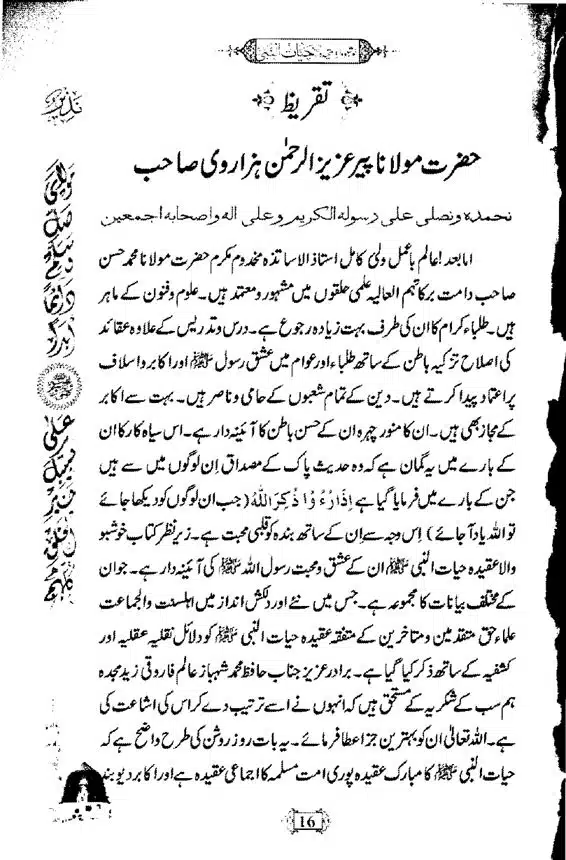 حیات النبی
تقریظ
حضرت مولانا پیر عزیز الرحمٰن ہزاروی صاحب
نحمدہ ونصلی علی رسولہ الکریم و علی الہ واصحابہ اجمعین
اما بعد! عالم باعمل ولیٔ کامل استاذ الاساتذہ مخدوم مکرم حضرت مولانا محمد حسن
صاحب دامت برکاتہم العالیہ علمی حلقوں میں مشہور و معتمد ہیں۔ علوم و فنون کے ماہر
ہیں۔ طلباء کرام کا ان کی طرف بہت زیادہ رجوع ہے۔ درس و تدریس کے علاوہ عقائد
کی اصلاح تزکیہ باطن کے ساتھ طلباء اور عوام میں عشق رسول ﷺ اور اکابر و اسلاف
پر اعتماد پیدا کرتے ہیں۔ دین کے تمام شعبوں کے حامی و ناصر ہیں۔ بہت سے اکابر
کے مجاز بھی ہیں۔ ان کا منور چہرہ ان کے حسن باطن کا آئینہ دار ہے۔ اس سیاہ کار کا ان
کے بارے میں یہ گمان ہے کہ وہ حدیث پاک کے مصداق اِن لوگوں میں سے ہیں
جن کے بارے میں فرمایا گیا ہے اِذَا رُءُ وْا ذُکِرَ اللّٰہُ (جب ان لوگوں کو دیکھا جائے
تو اللہ یاد آجائے) اِس وجہ سے اِن کے ساتھ بندہ کو قلبی محبت ہے۔ زیر نظر کتاب خوشبو
والا عقیدہ حیات النبی ﷺ ان کے عشق و محبت رسول اللہ ﷺ کی آئینہ دار ہے۔ جو ان
کے مختلف بیانات کا مجموعہ ہے۔ جس میں نئے اور دلکش انداز میں اہلسنت والجماعت
علماء حق متقدمین و متاخرین کے متفقہ عقیدہ حیات النبی ﷺ کو دلائل نقلیہ عقلیہ اور
کشفیہ کے ساتھ ذکر کیا گیا ہے۔ برادر عزیز جناب حافظ محمد شہباز عالم فاروقی زید مجدہ
ہم سب کے شکریہ کے مستحق ہیں کہ انہوں نے اسے ترتیب دے کر اس کی اشاعت کی
ہے۔ اللہ تعالیٰ ان کو بہترین جزا عطا فرمائے۔ یہ بات روز روشن کی طرح واضح ہے کہ
حیات النبی ﷺ کا مبارک عقیدہ پوری امت مسلمہ کا اجماعی عقیدہ ہے اور اکابر دیوبند
16
مولای صل وسلم دائما ابدا
علی حبیبک خیر الخلق کلہم